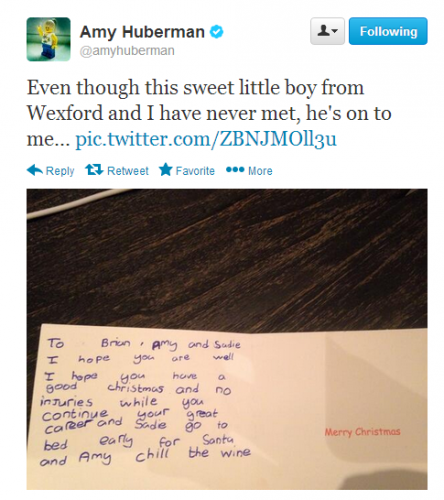 Amy Huberman
@amyhuberman
Following
Even though this sweet little boy from
Wexford and I have never met, he's on to
me... pic.twitter.com/ZBNJMOll3u
Reply Retweet Favorite More
To Brian, Amy and Sadie
I hope you are well
I hope you have a
good christmas and no
injuries while you
continue your great
career and Sadie go to
bed early for Santa
and Amy chill the wine
Merry Christmas